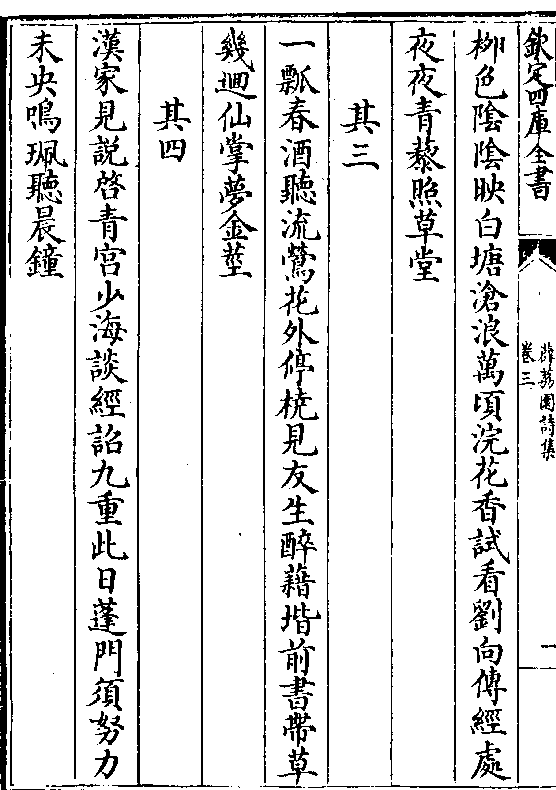 欽定四庫全書
薜荔園詩集
卷三
一
柳色陰陰映白塘滄浪萬頃浣花香試看劉向傳經處
夜夜青藜照草堂
其三
一瓢春酒聽流鶯花外停橈見友生醉藉堦前書帶草
幾迴仙掌夢金莖
其四
漢家見説啓青宫少海談經詔九重此日蓬門須努力
未央鳴珮聽晨鐘